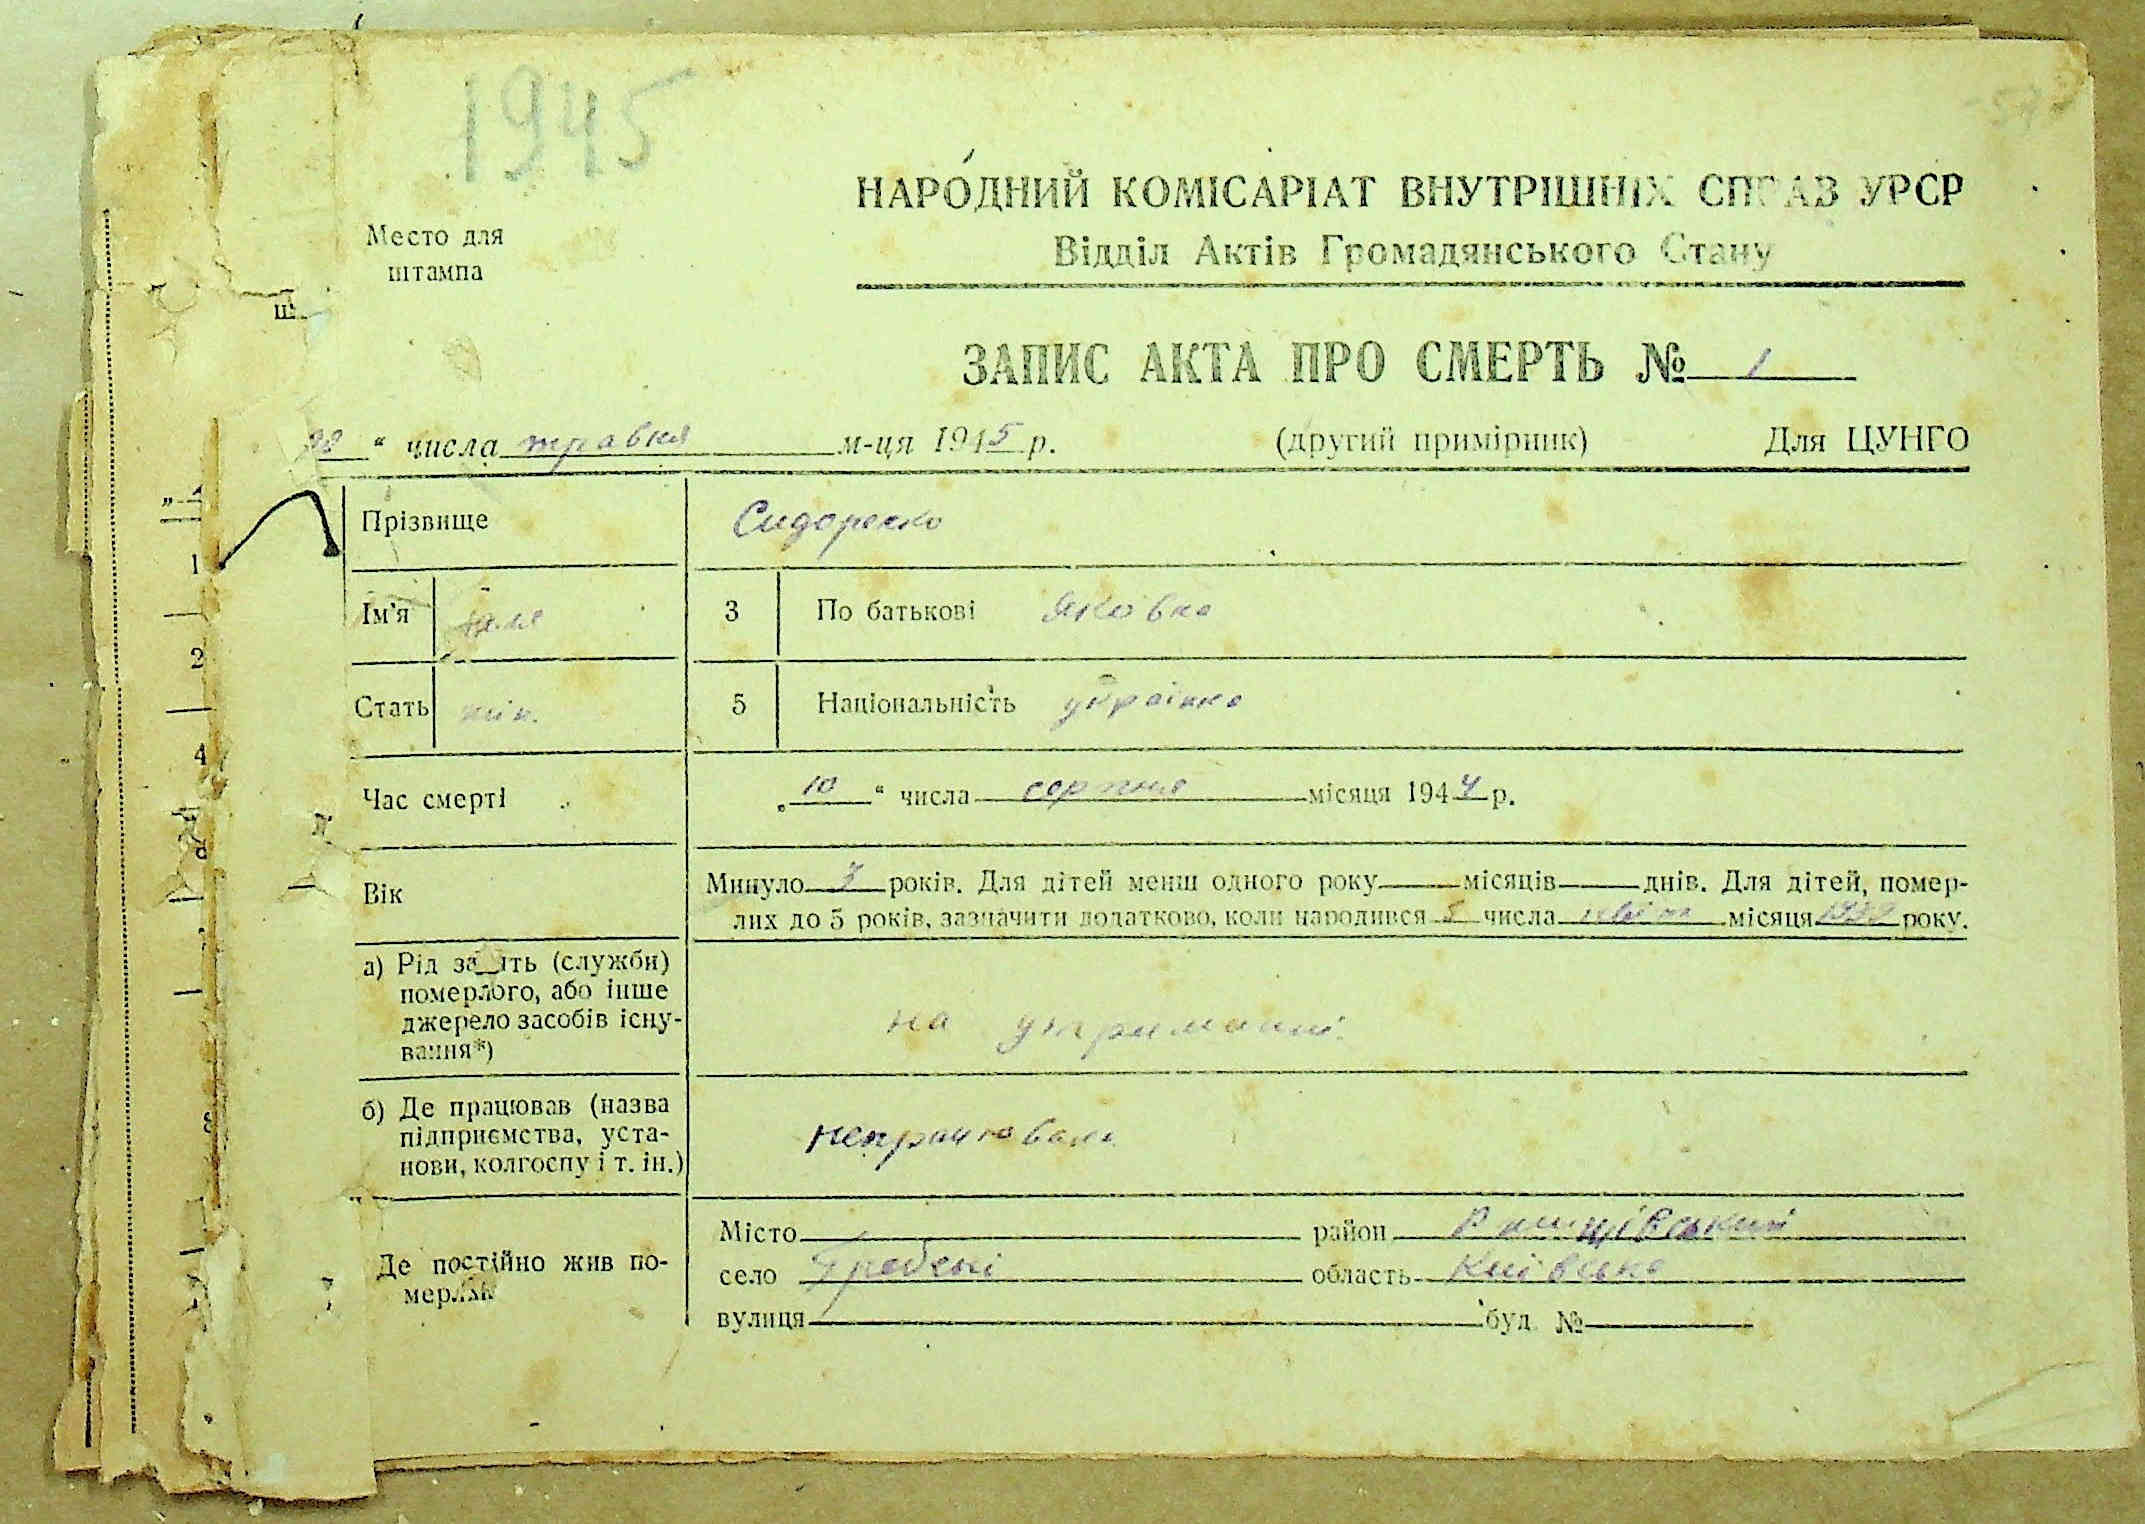 1945
Место для
штампа
НАРО́ДНИЙ КОМІСАРІАТ ВНУТРІШНІХ СПРАВ УРСР
Відділ Актів Громадянського Стану
ЗАПИС АКТА ПРО СМЕРТЬ № 1
“ числа травня м-ця 1945 р. (другий примірник) Для ЦУНГО
Прізвище Сидоренко
Ім'я Галя 3 По батькові Яковна
Стать жін. 5 Національність українка
Час смерті „10“ числа серпня місяця 1944 р.
Вік
Минуло років. Для дітей менш одного року місяців днів. Для дітей, помер-
лих до 5 років, зазначити додатково, коли народився числа місяця року.
а) Рід занять (служби)
померлого, або інше
джерело засобів існу-
вання*)
на утриманні
б) Де працював (назва
підприємства, уста-
нови, колгоспу і т. ін.)
непрацювала
Де постійно жив по-
мерлий
Місто район Ржищівський
село Гребені область Київська
вулиця буд. №
1
2
4